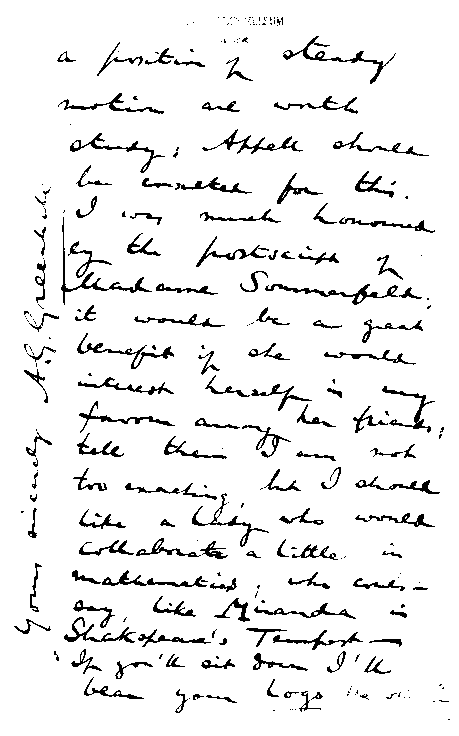 a position of steady
motion are worth
study; Appell should
be consulted for this.
I was much honoured
by the postscript of
Madame Sommerfeld;
it would be a great
benefit if she would
interest herself in my
favour among her friends;
tell them I am not
too exacting, but I should
like a Lady who would
collaborate a little in
mathematics, who could
say, like Miranda in
Shakspeare's Tempest —
"If you'll sit down I'll
bear your Logs
Yours sincerely A.G. Greenhill